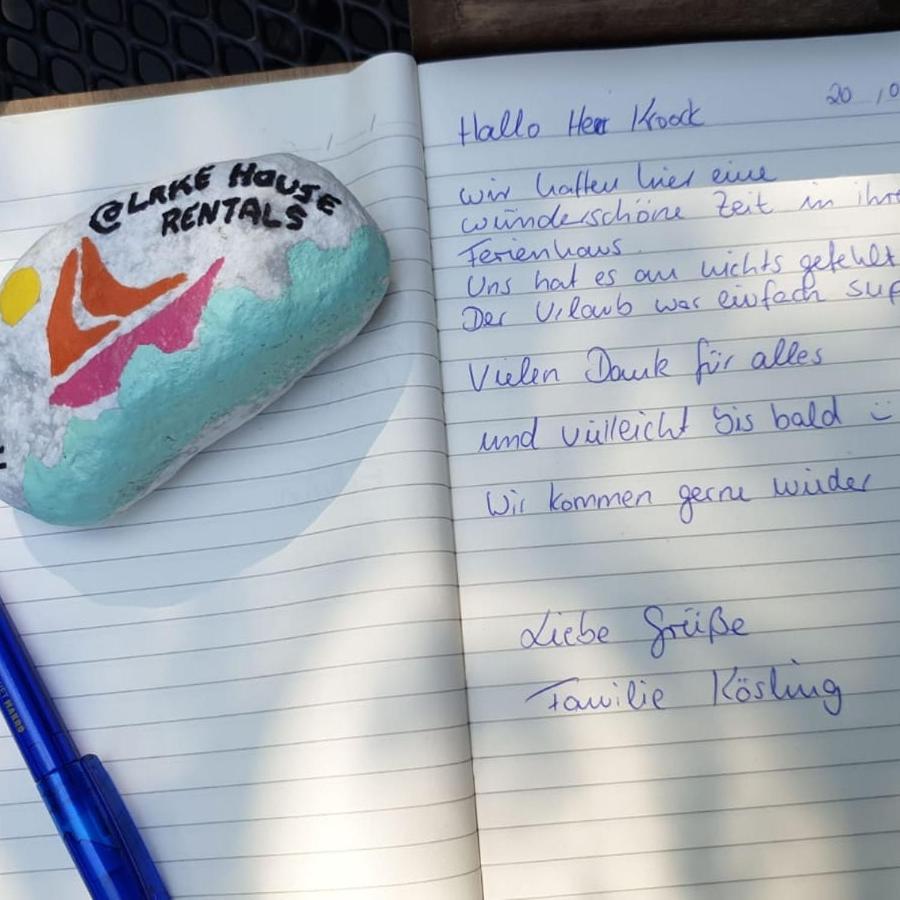 @LAKE HOUSE
RENTALS
20
Hallo Herr Koock
wir hatten hier eine
wünderschöne Zeit in ihre
Ferienhaus
Uns hat es an nichts gefehlt
Der Urlaub war einfach sup
Vielen Dank für alles
und vielleicht bis bald
Wir kommen gerne wieder
Liebe Grüße
Familie Kösling